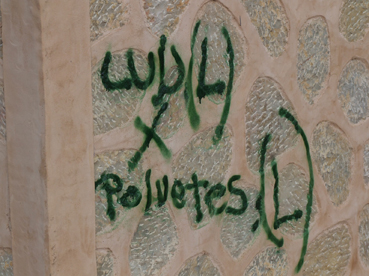 LUD(L)
X
PolvetES(L)